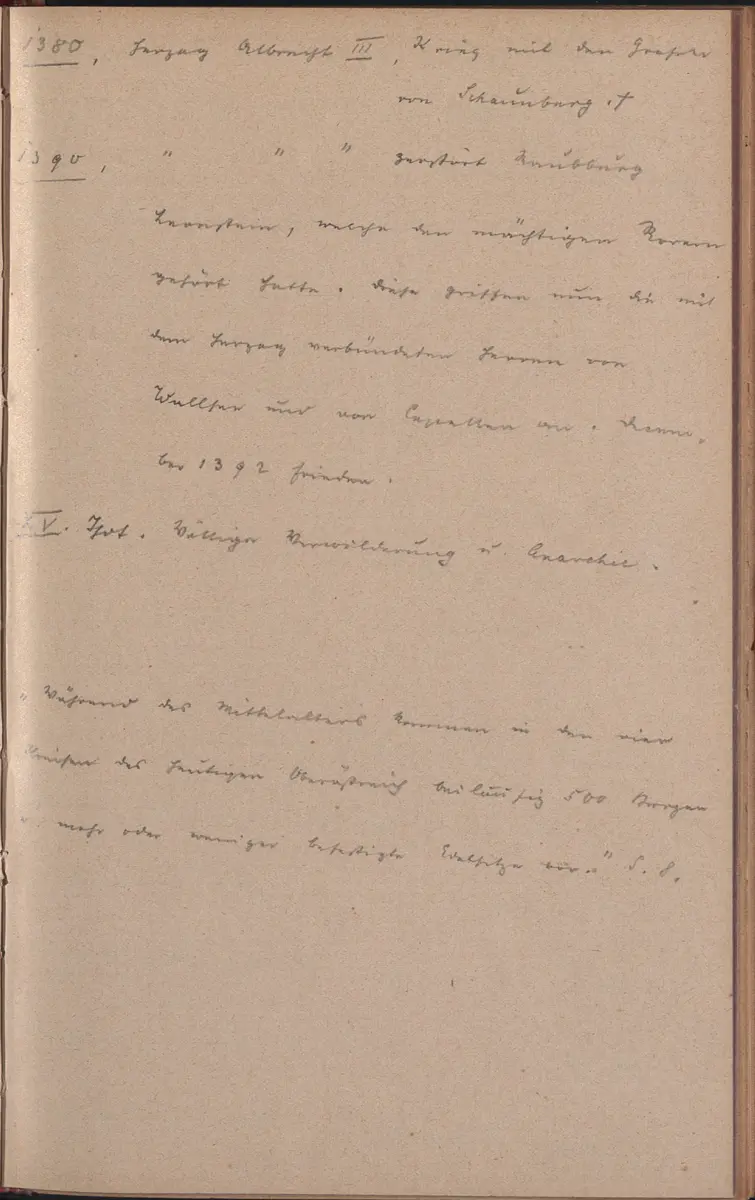 1380, Herzog Albrecht III, Krieg mit den Grafen
von Schaunberg. †
1390, " " " zerstört Raubburg
Leonstein, welche den mächtigen Rorern
gehört hatte. Diese griffen nun die mit
dem Herzog verbündeten Herren von
Wallsee und von Capellen an. Dezem-
ber 1392 Frieden.
XV. Jhdt. Völliger Verwilderung u. Anarchie.
"Während des Mittelalters kommen in den vier
Kreisen des heutigen Oberöstreich beiläufig 500 Burgen
u. mehr oder weniger befestigte Edelsitze vor." S. 8.